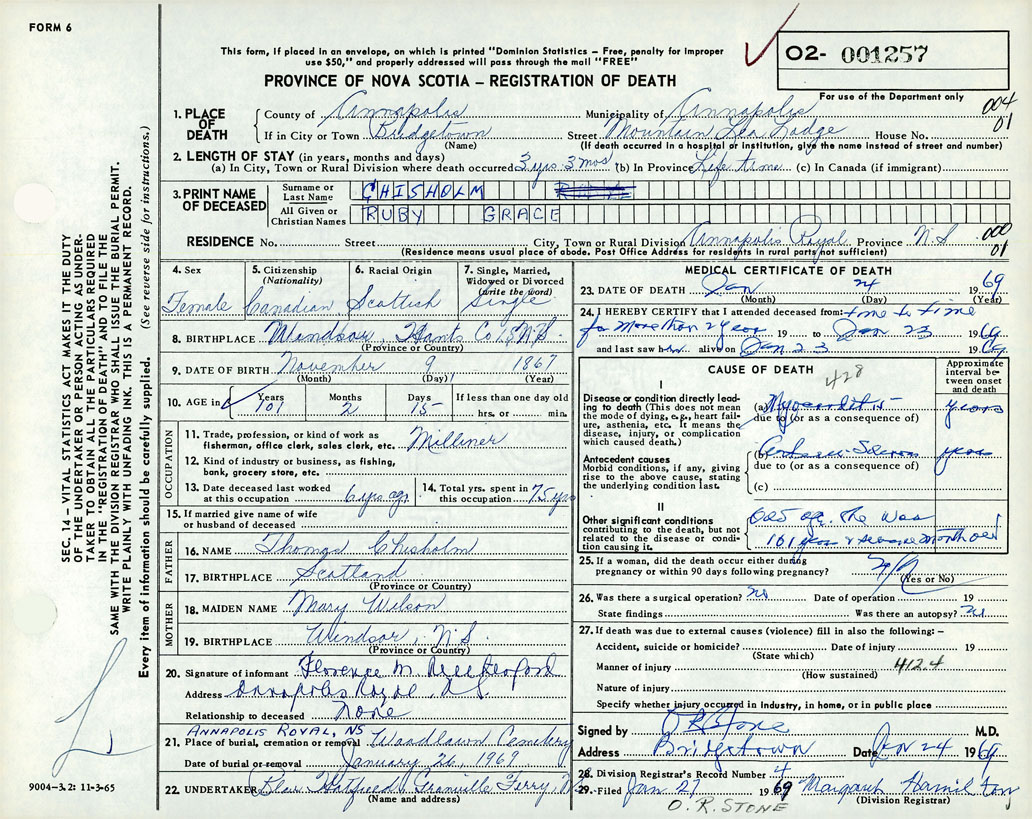 FORM 6
This form, if placed in an envelope, on which is printed "Dominion Statistics – Free, penalty for improper
use $50," and properly addressed will pass through the mail "FREE"
O2- 001257
PROVINCE OF NOVA SCOTIA – REGISTRATION OF DEATH
For use of the Department only
004
01
1. PLACE OF DEATH
County of Annapolis Municipality of Annapolis
If in City or Town Bridgetown Street Mountain Lea Lodge House No.
(Name) (If death occurred in a hospital or institution, give the name instead of street and number)
2. LENGTH OF STAY (in years, months and days)
(a) In City, Town or Rural Division where death occurred 3 yrs 3 mos (b) In Province Life time (c) In Canada (if immigrant)
3. PRINT NAME OF DECEASED
Surname or Last Name CHISHOLM
All Given or Christian Names RUBY GRACE
RESIDENCE No. Street City, Town or Rural Division Annapolis Royal Province N.S
000
01
(Residence means usual place of abode. Post Office Address for residents in rural parts not sufficient)
4. Sex
Female
5. Citizenship
(Nationality)
Canadian
6. Racial Origin
Scottish
7. Single, Married,
Widowed or Divorced
(write the word)
Single
8. BIRTHPLACE Windsor, Hants Co., N.S.
(Province or Country)
9. DATE OF BIRTH November 9 1867
(Month) (Day) (Year)
10. AGE in Years 101 Months 2 Days 15 If less than one day old
hrs. or min.
OCCUPATION
11. Trade, profession, or kind of work as
fisherman, office clerk, sales clerk, etc. Milliner
12. Kind of industry or business, as fishing,
bank, grocery store, etc.
13. Date deceased last worked
at this occupation 6 yrs ago
14. Total yrs. spent in
this occupation 75 yrs
15. If married give name of wife
or husband of deceased
FATHER
16. NAME Thomas Chisholm
17. BIRTHPLACE Scotland
(Province or Country)
MOTHER
18. MAIDEN NAME Mary Wilson
19. BIRTHPLACE Windsor, N.S.
(Province or Country)
20. Signature of informant Florence M.
Address Annapolis Royal, N.S.
Relationship to deceased None
ANNAPOLIS ROYAL, NS
21. Place of burial, cremation or removal Woodlawn Cemetery
Date of burial or removal January 26, 1969
22. UNDERTAKER Blair Hatfield, Granville Ferry, N.S.
(Name and address)
MEDICAL CERTIFICATE OF DEATH
23. DATE OF DEATH Jan 24 1969
(Month) (Day) (Year)
24. I HEREBY CERTIFY that I attended deceased from: time to time
for more than 2 years 19 to Jan 23 1969
and last saw her alive on Jan 23 1969
CAUSE OF DEATH
428
Approximate interval between onset and death
I
Disease or condition directly leading to death (This does not
the mode of dying, e.g., heart failure, asthenia, etc. It means the
disease, injury, or complication
which caused death.)
(a) Myocarditis years
due to (or as a consequence of)
Antecedent causes
Morbid conditions, if any, giving
rise to the above cause, stating
the underlying condition last.
(b) years
due to (or as a consequence of)
(c)
II
Other significant conditions
contributing to the death, but not
related to the disease or condition causing it.
Old age. She was
101 years month old
25. If a woman, did the death occur either during
pregnancy or within 90 days following pregnancy?
(Yes or No)
26. Was there a surgical operation? no Date of operation 19
State findings Was there an autopsy? no
27. If death was due to external causes (violence) fill in also the following: –
Accident, suicide or homicide? Date of injury 19
(State which)
Manner of injury 412.4
(How sustained)
Nature of injury
Specify whether injury occurred in industry, in home, or in public place
Signed by O R Stone M.D.
Address Bridgetown Date Jan 24 1969
28. Division Registrar's Record Number 4
29. Filed Jan 27 1969 Margaret Hamilton
O. R. STONE (Division Registrar)
SEC. 14 – VITAL STATISTICS ACT MAKES IT THE DUTY
OF THE UNDERTAKER OR PERSON ACTING AS UNDER-
TAKER TO OBTAIN ALL THE PARTICULARS REQUIRED
IN THE "REGISTRATION OF DEATH" AND TO FILE THE
SAME WITH THE DIVISION REGISTRAR WHO SHALL ISSUE THE BURIAL PERMIT.
WRITE PLAINLY WITH UNFADING INK. THIS IS A PERMANENT RECORD.
Every item of information should be carefully supplied. (See reverse side for instructions.)
9004-3.2: 11-3-65